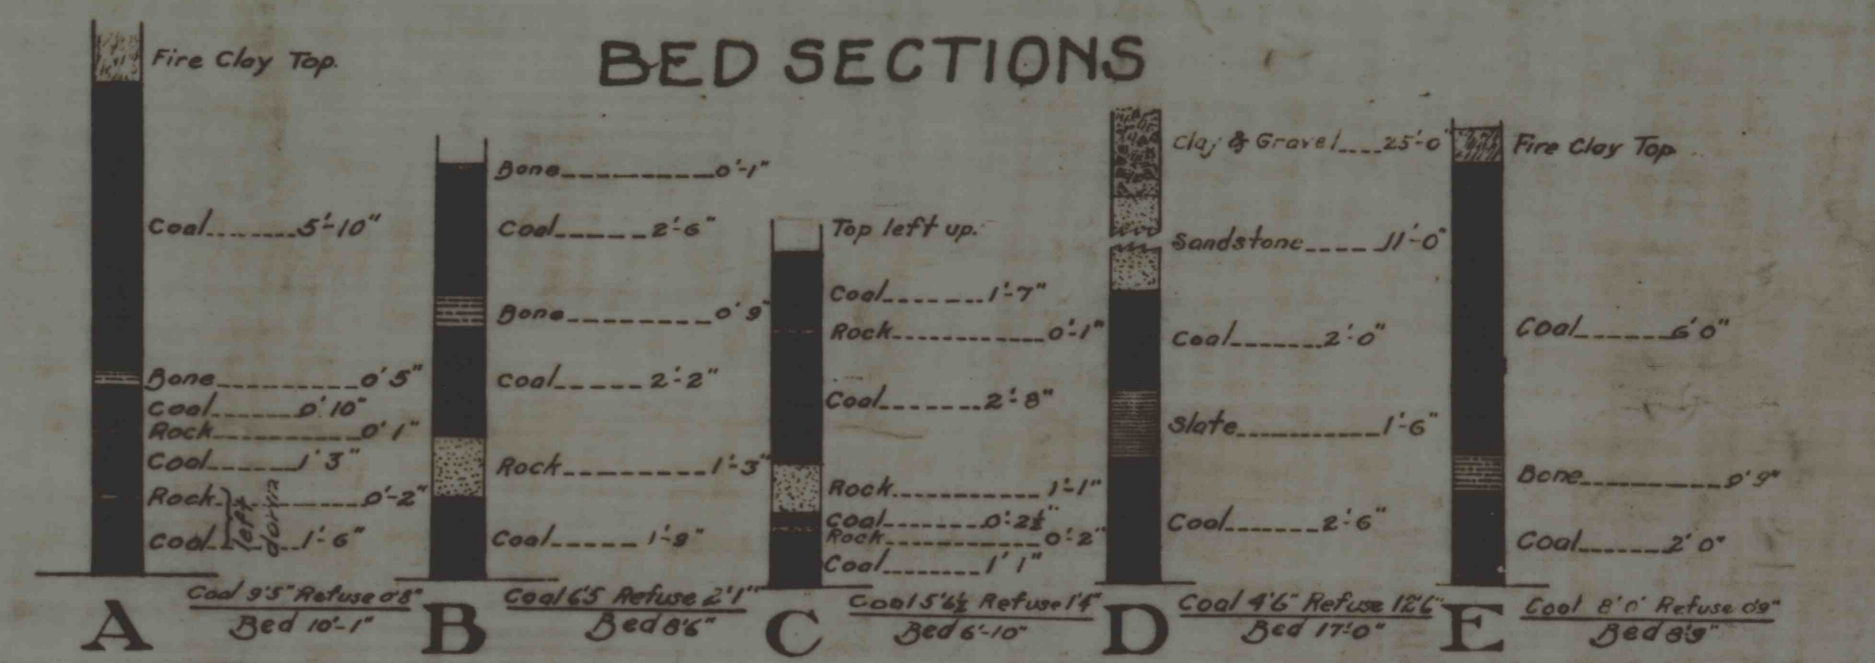 BED SECTIONS
Fire Clay Top.
Coal 5'-10"
Bone 0' 5"
Coal 0' 10"
Rock 0' 1"
Coal 1' 3"
Rock 0'-2"
Coal 1'-6"
left down
A
Coal 9'5" Refuse 0'8"
Bed 10'-1"
Bone 0'-1"
Coal 2'-6"
Bone 0' 9"
Coal 2'-2"
Rock 1'-3"
Coal 1'-9"
B
Coal 6'5 Refuse 2'1"
Bed 8'6"
Top left up.
Coal 1'-7"
Rock 0'-1"
Coal 2'-8"
Rock 1'-1"
Coal 0'-2½"
Rock 0'-2"
Coal 1' 1"
C
Coal 5'6½ Refuse 1'4"
Bed 6'-10"
Clay & Gravel 25'-0"
Sandstone 11'-0"
Coal 2'-0"
Slate 1'-6"
Coal 2'-6"
D
Coal 4'6" Refuse 12'6"
Bed 17'-0"
Fire Clay Top
Coal 6' 0"
Bone 0' 9"
Coal 2' 0"
E
Coal 8' 0" Refuse 0'9"
Bed 8'9"